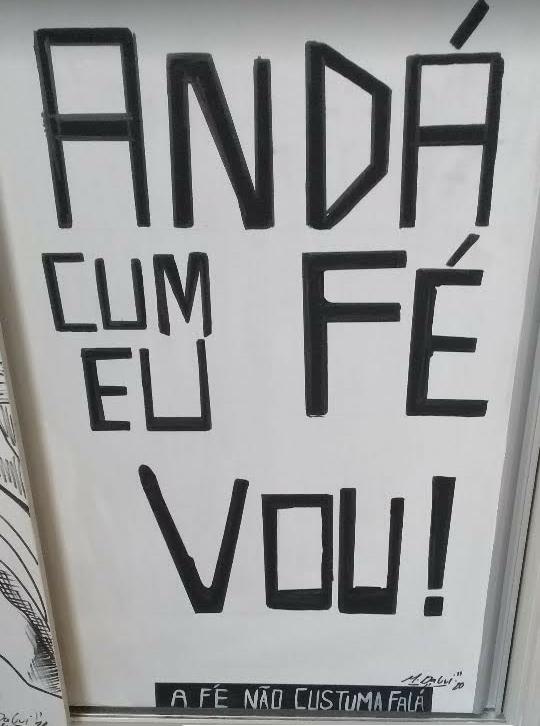 ANDÁ
CUM FÉ
EU
VOU!
A FÉ NÃO CUSTUMA FALÁ